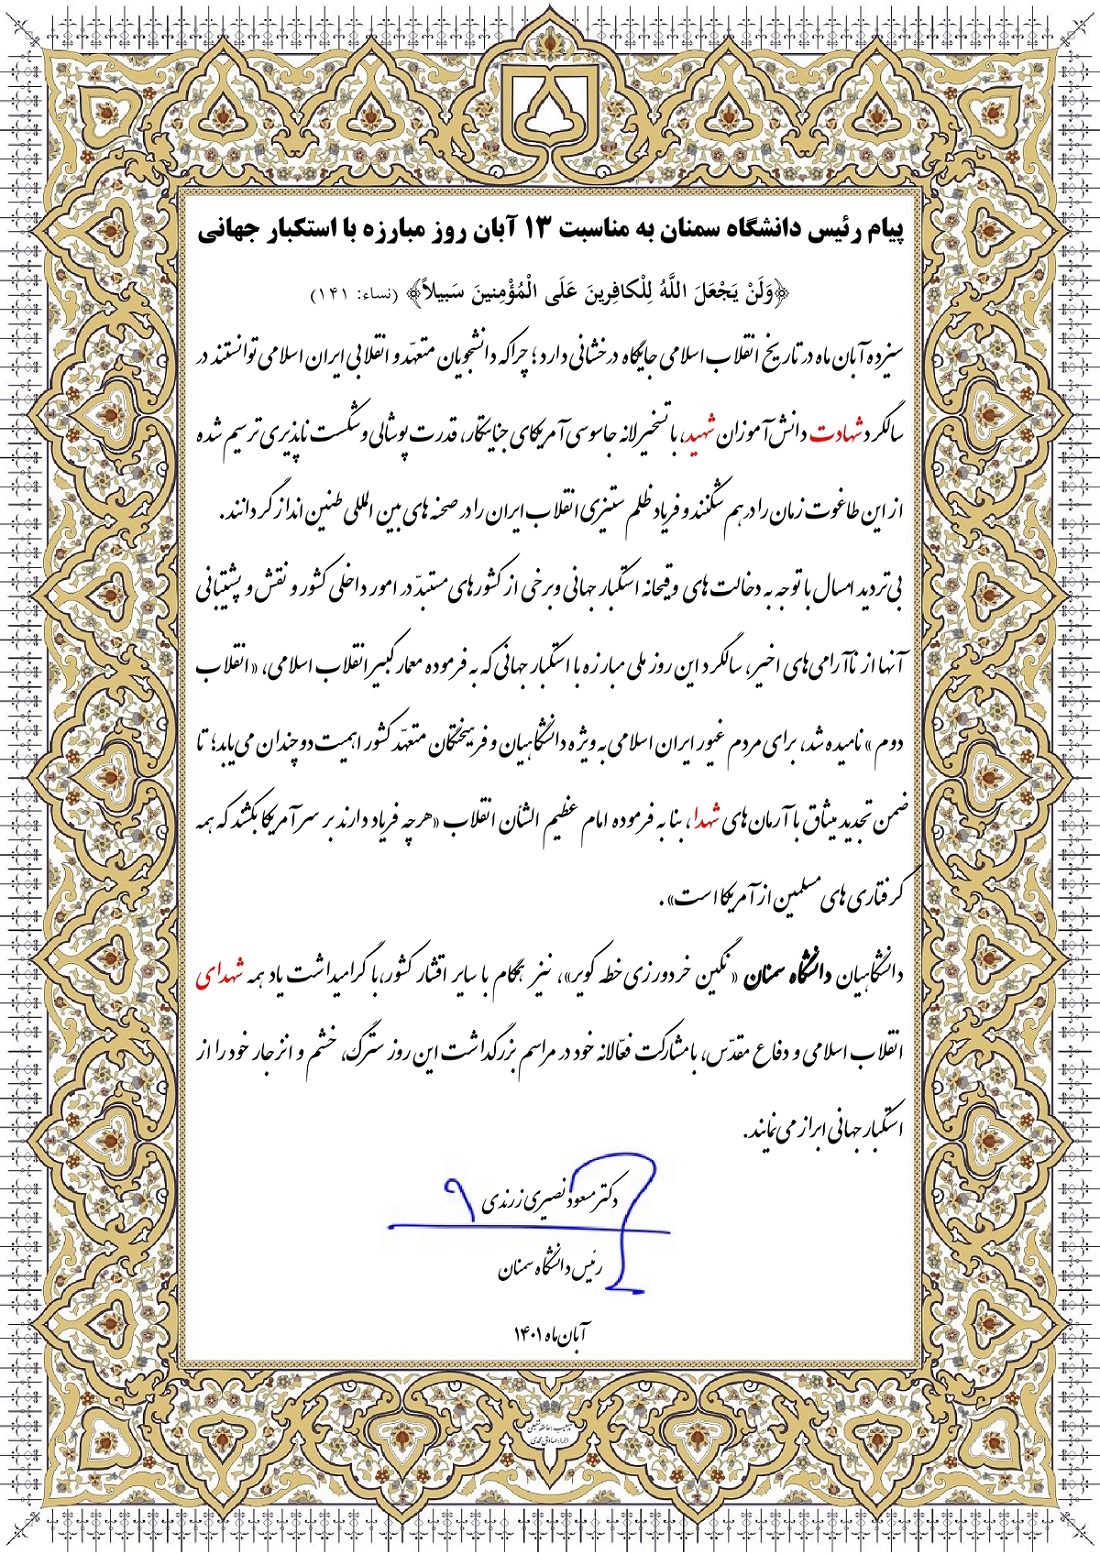 پیام رئیس دانشگاه سمنان به مناسبت ۱۳ آبان روز مبارزه با استکبار جهانی
﴿وَلَنْ يَجْعَلَ اللَّهُ لِلْكافِرِينَ عَلَى الْمُؤْمِنينَ سَبيلاً﴾ (نساء: ۱۴۱)
سیزده آبان ماه در تاریخ انقلاب اسلامی جایگاه درخشانی دارد؛ چراکه دانشجویان متعهّد و انقلابی ایران اسلامی توانستند در
سالگرد شهادت دانش‌آموزان شهید، با تسخیر لانه جاسوسی آمریکای جنایتکار، قدرت پوشالی و شکست ناپذیری ترسیم شده
از این طاغوت زمان را در هم شکنند و فریاد ظلم ستیزی انقلاب ایران را در صحنه های بین المللی طنین انداز گردانند.
بی‌تردید امسال با توجه به دخالت های وقیحانه استکبار جهانی و برخی از کشورهای مستبدّ در امور داخلی کشور و نقش و پشتیبانی
آنها از ناآرامی‌های اخیر، سالگرد این روز ملی مبارزه با استکبار جهانی که به فرموده معمار کبیر انقلاب اسلامی، «انقلاب
دوم» نامیده شد، برای مردم غیور ایران اسلامی به ویژه دانشگاهیان و فرهیختگان متعهّد کشور اهمیت دوچندان می‌یابد؛ تا
ضمن تجدید میثاق با آرمان‌های شهدا، بنا به فرموده امام عظیم الشأن انقلاب «هرچه فریاد دارند بر سر آمریکا بکشند که همه
گرفتاری های مسلمین از آمریکا است».
دانشگاهیان دانشگاه سمنان «نگین خردورزی خطه کویر»، نیز همگام با سایر اقشار کشور، با گرامیداشت یاد همه شهدای
انقلاب اسلامی و دفاع مقدّس، با مشارکت فعّالانه خود در مراسم بزرگداشت این روز سترگ، خشم و انزجار خود را از
استکبار جهانی ابراز می‌نمایند.
دکتر مسعود نصیری زرندی
رئیس دانشگاه سمنان
آبان ماه ۱۴۰۱